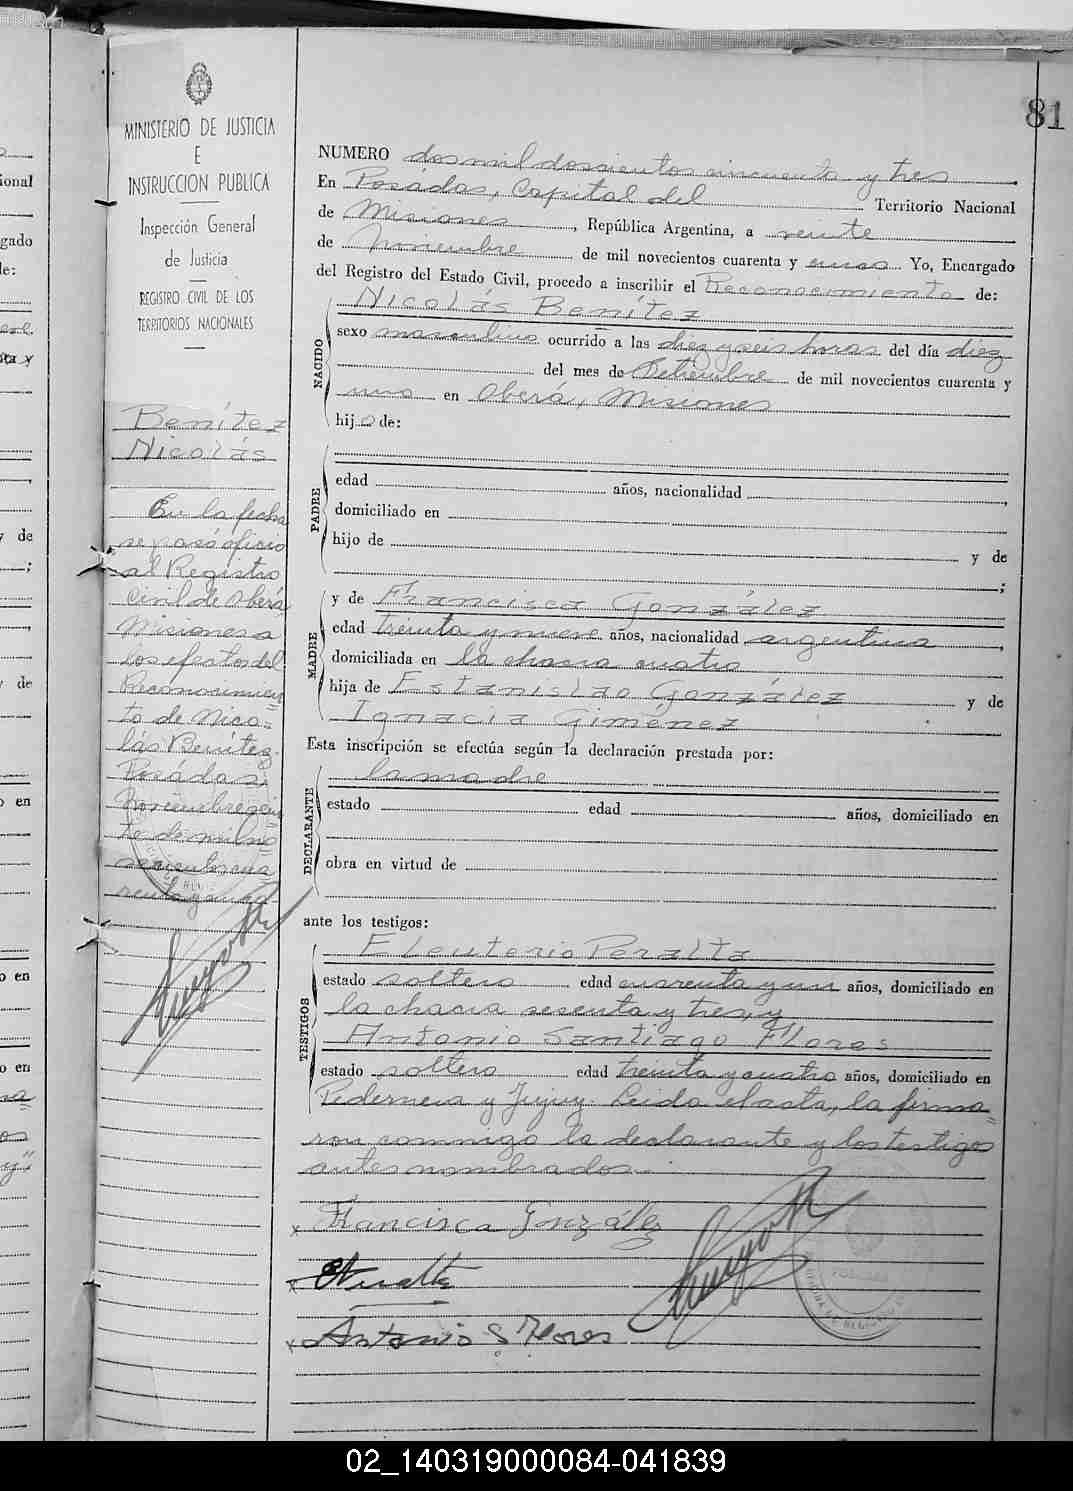 81
MINISTERIO DE JUSTICIA
E
INSTRUCCION PUBLICA
Inspección General
de Justicia
REGISTRO CIVIL DE LOS
TERRITORIOS NACIONALES
Benítez
Nicolás
En la fecha
se pasó oficio
al Registro
Civil de Oberá
Misiones a
los efectos del
Reconocimien
to de Nico=
lás Benítez.
Posadas,
Noviembre vein
te de mil no
vecientos cua
renta y uno
NUMERO dos mil doscientos cincuenta y tres
En Posadas, Capital del Territorio Nacional
de Misiones, República Argentina, a veinte
de Noviembre de mil novecientos cuarenta y uno Yo, Encargado
del Registro del Estado Civil, procedo a inscribir el Reconocimiento de:
NACIDO
Nicolás Benítez
sexo masculino ocurrido a las diez y seis horas del día diez
del mes de Setiembre de mil novecientos cuarenta y
uno en Oberá, Misiones
hijo de:
PADRE
edad años, nacionalidad ,
domiciliado en
hijo de y de
;
MADRE
y de Francisca González
edad treinta y nueve años, nacionalidad argentina,
domiciliada en la chacra cuatro
hija de Estanislao González y de
Ignacia Giménez
Esta inscripción se efectúa según la declaración prestada por:
DECLARANTE
la madre
estado edad años, domiciliado en
obra en virtud de
ante los testigos:
TESTIGOS
Eleuterio Peralta
estado soltero edad cuarenta y un años, domiciliado en
la chacra sesenta y tres, y
Antonio Santiago Flores
estado soltero edad treinta y cuatro años, domiciliado en
Pedernera y Jujuy. Leida el acta, la firma=
ron conmigo la declarante y los testigos
antes nombrados.
x Francisca González
x EPeralta
x Antonio S Flores
POSADAS
02_140319000084-041839